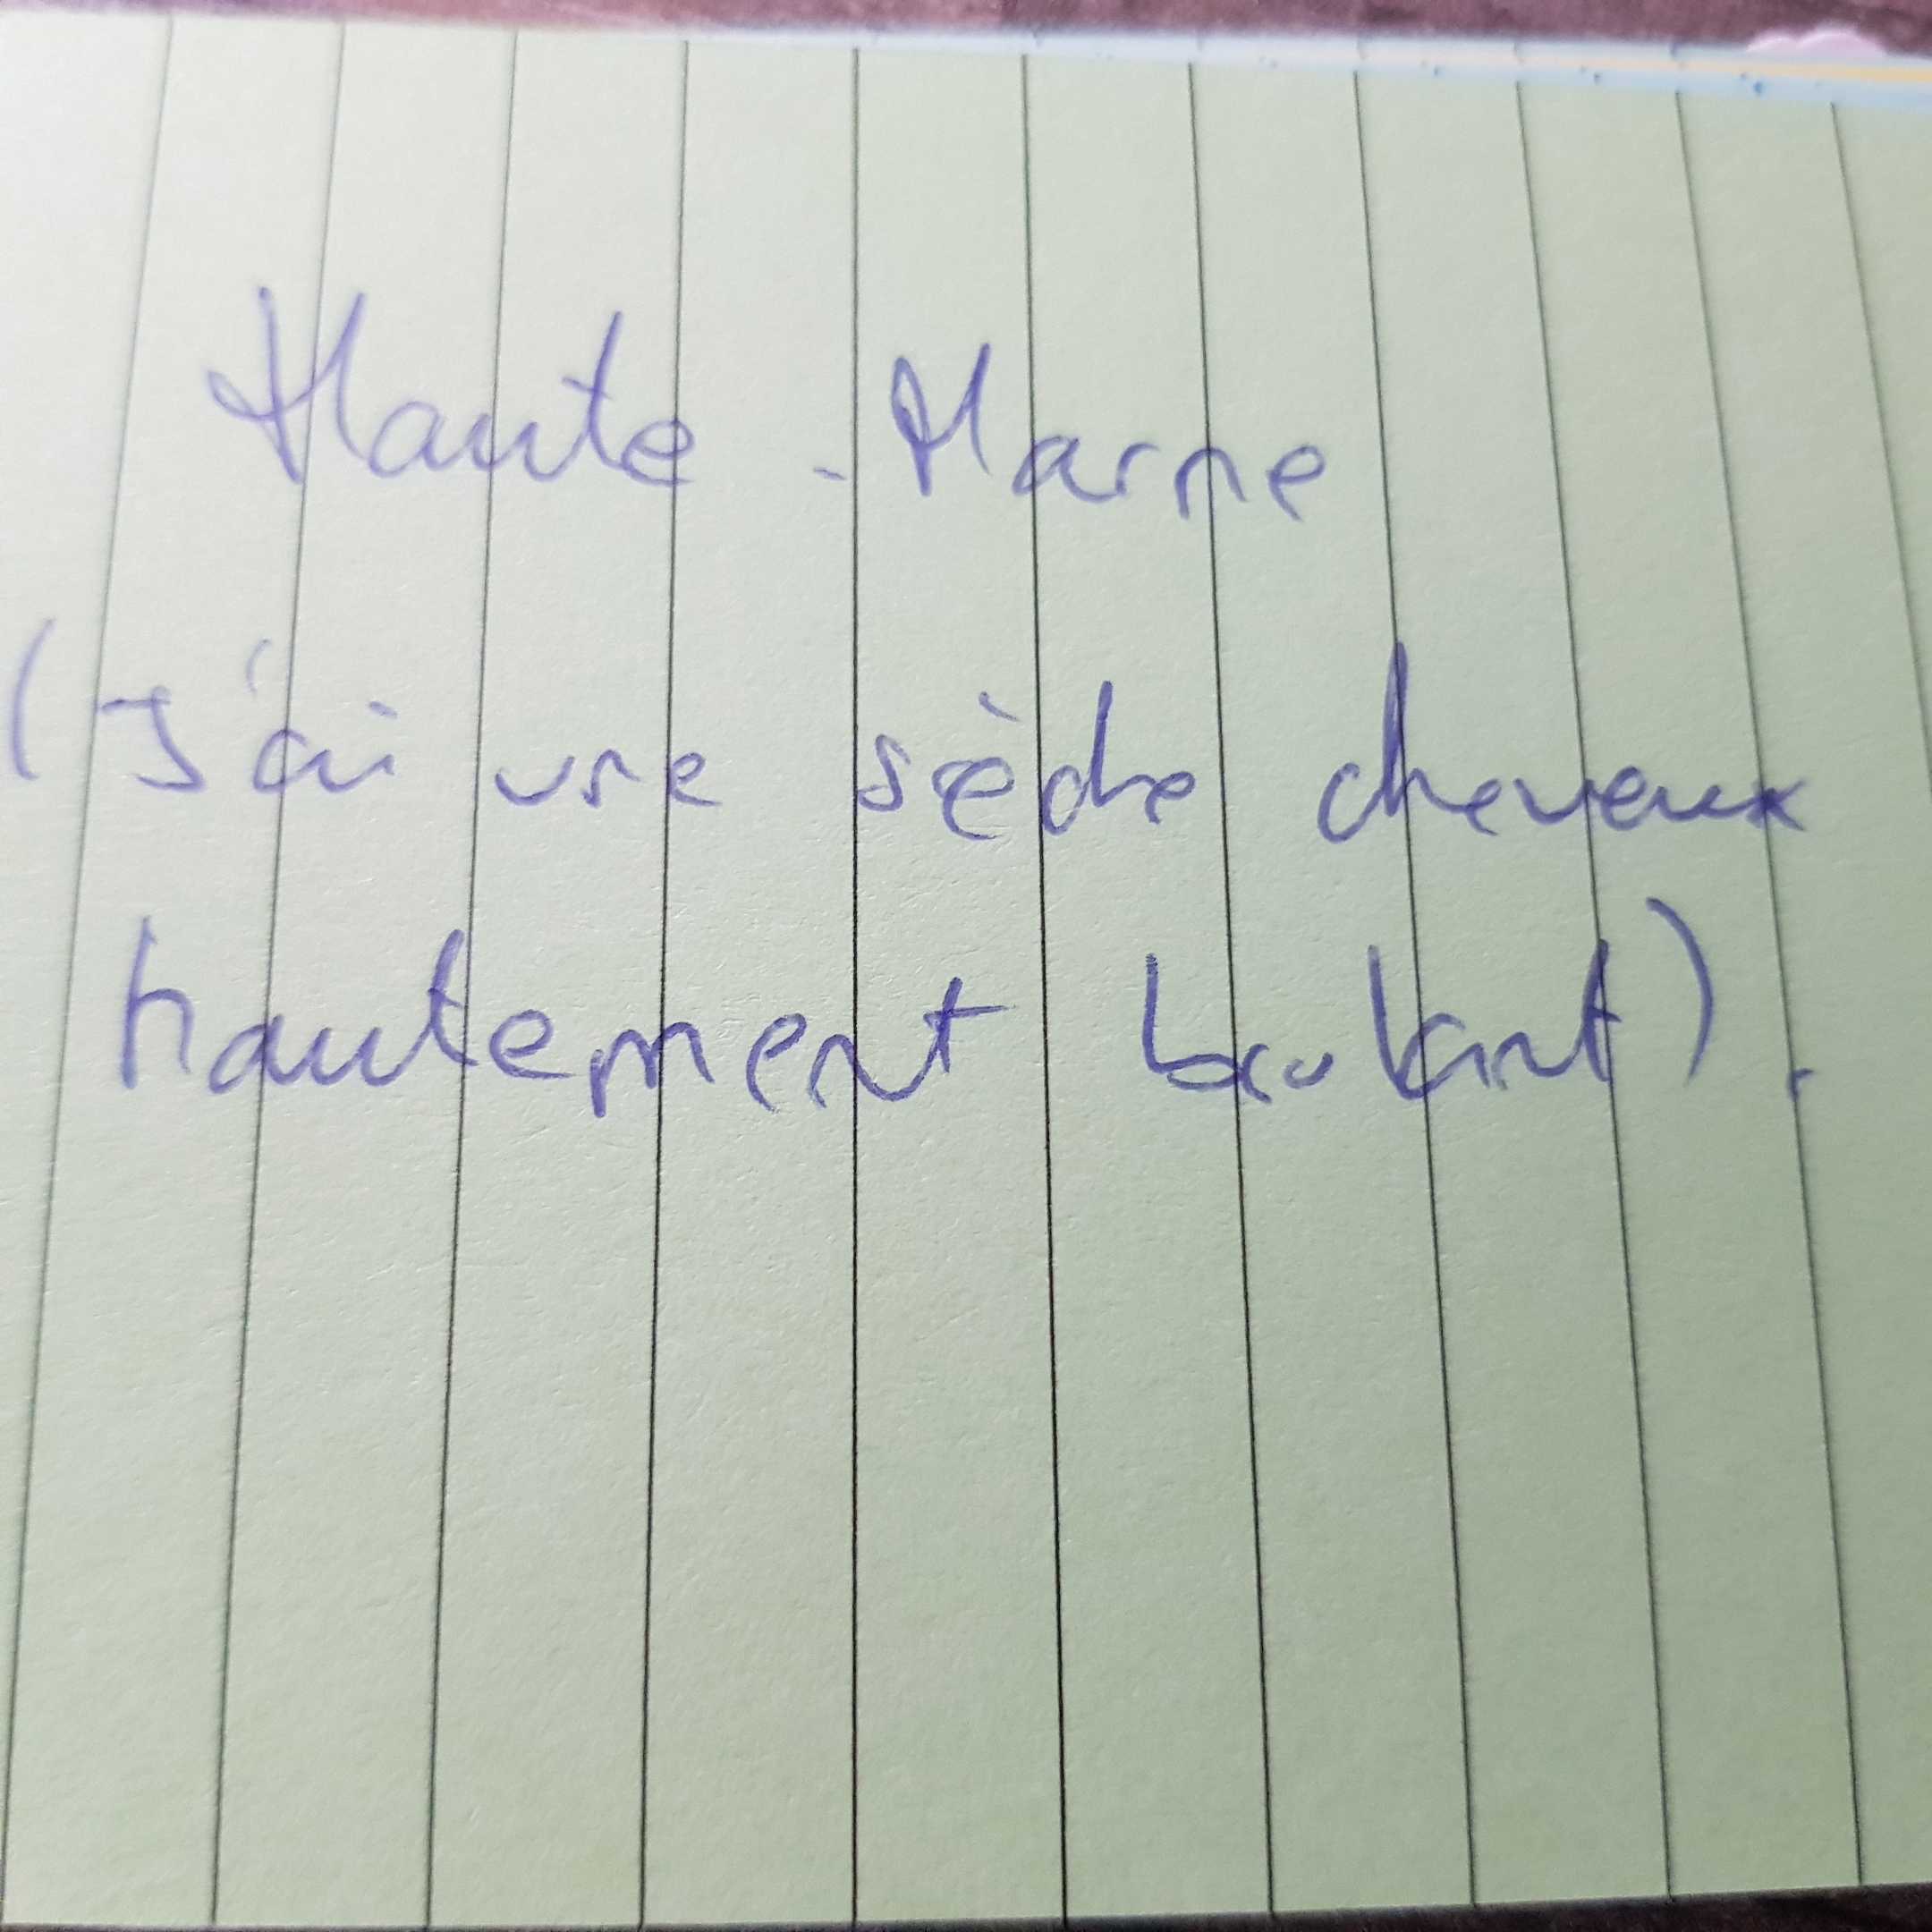 Haute-Marne
(J'ai une sèche cheveux
hautement brulant).